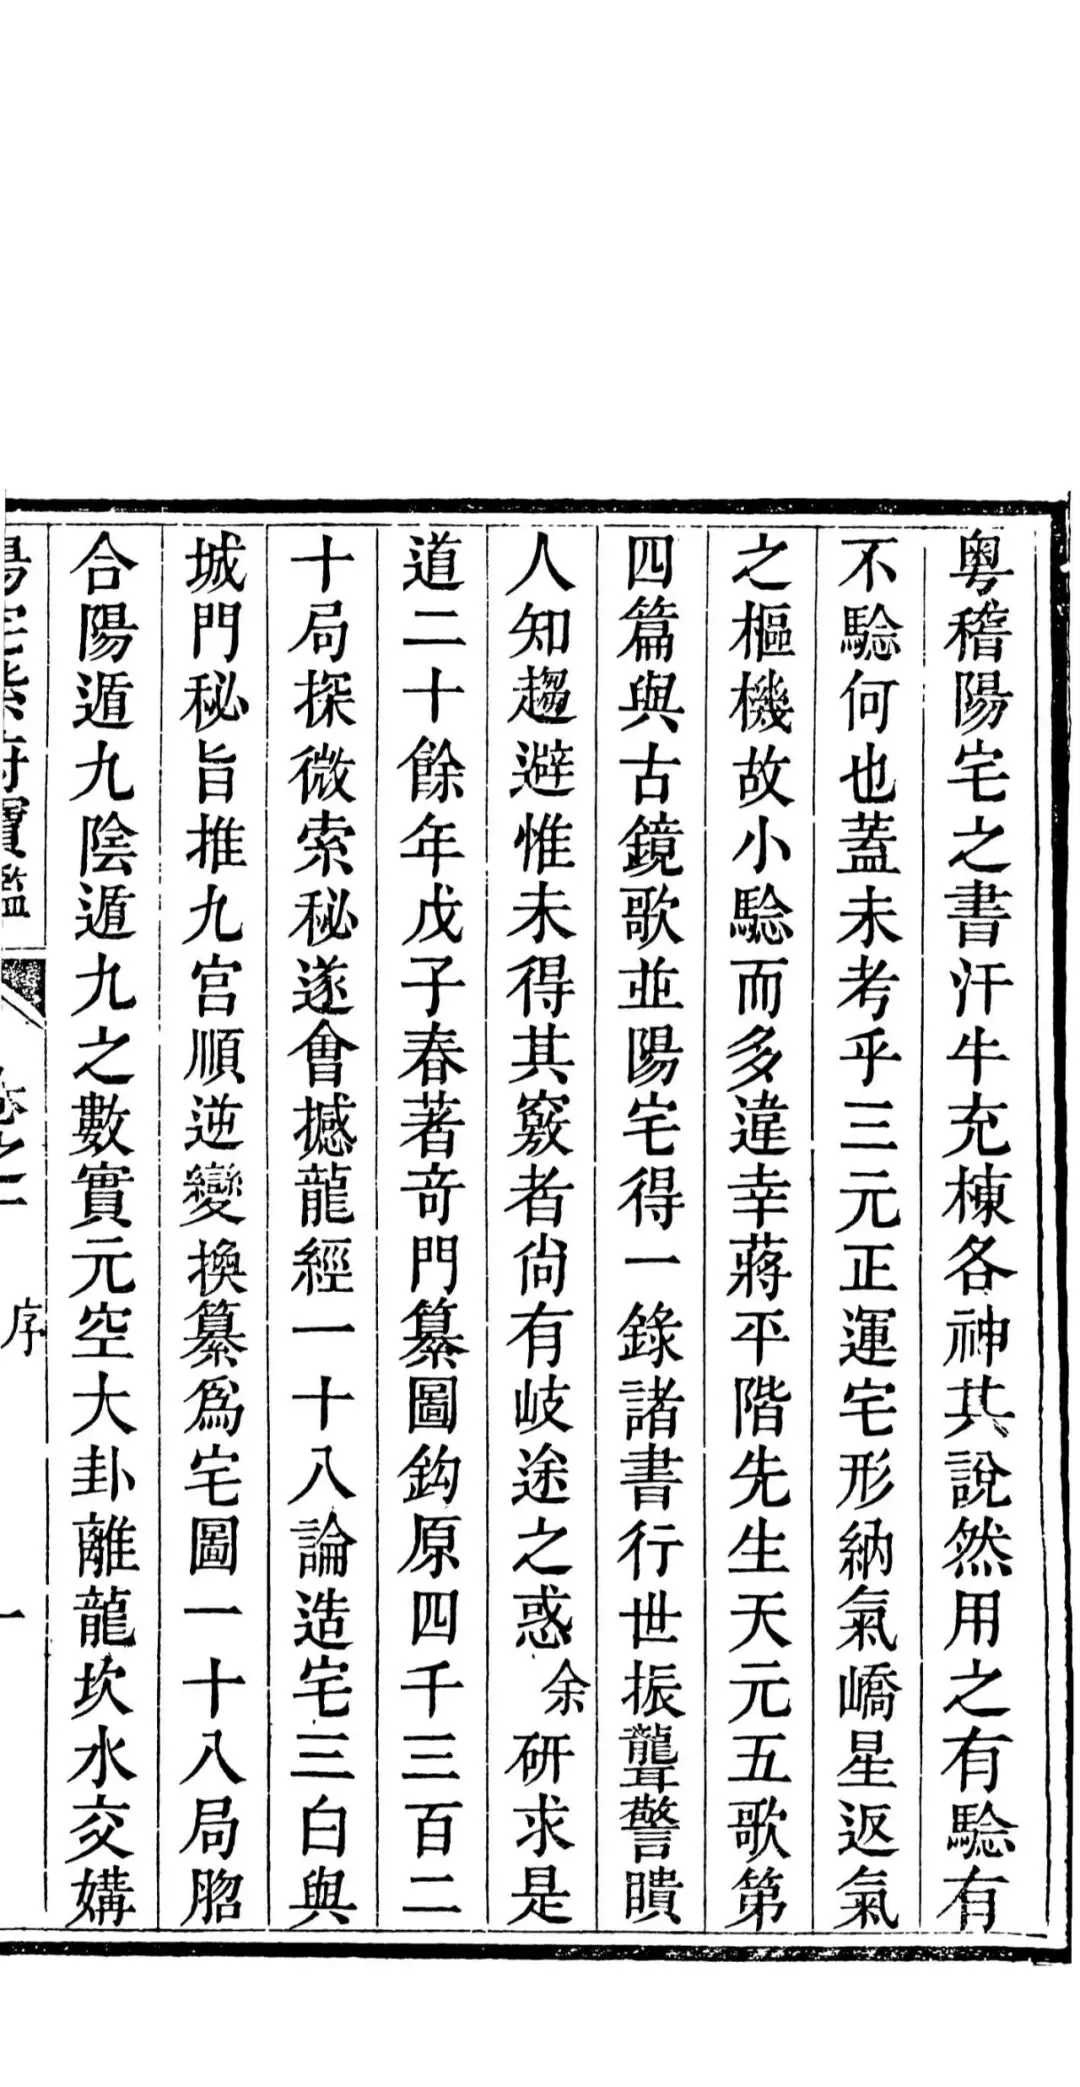 粤稽陽宅之書汗牛充棟各神其説然用之有驗有
不驗何也蓋未考乎三元正運宅形納氣嶠星返氣
之樞機故小驗而多違幸蔣平階先生天元五歌第
四篇與古鏡歌並陽宅得一錄諸書行世振聾警瞶
人知趨避惟未得其竅者尙有岐途之惑余研求是
道二十餘年戊子春著竒門纂圖鈎原四千三百二
十局探微索秘遂會撼龍經一十八論造宅三白與
城門秘旨推九宫順逆變換纂爲宅圖一十八局胎
合陽遁九陰遁九之數實元空大卦離龍坎水交媾
陽宅紫府寶鑑 卷之一 序 一